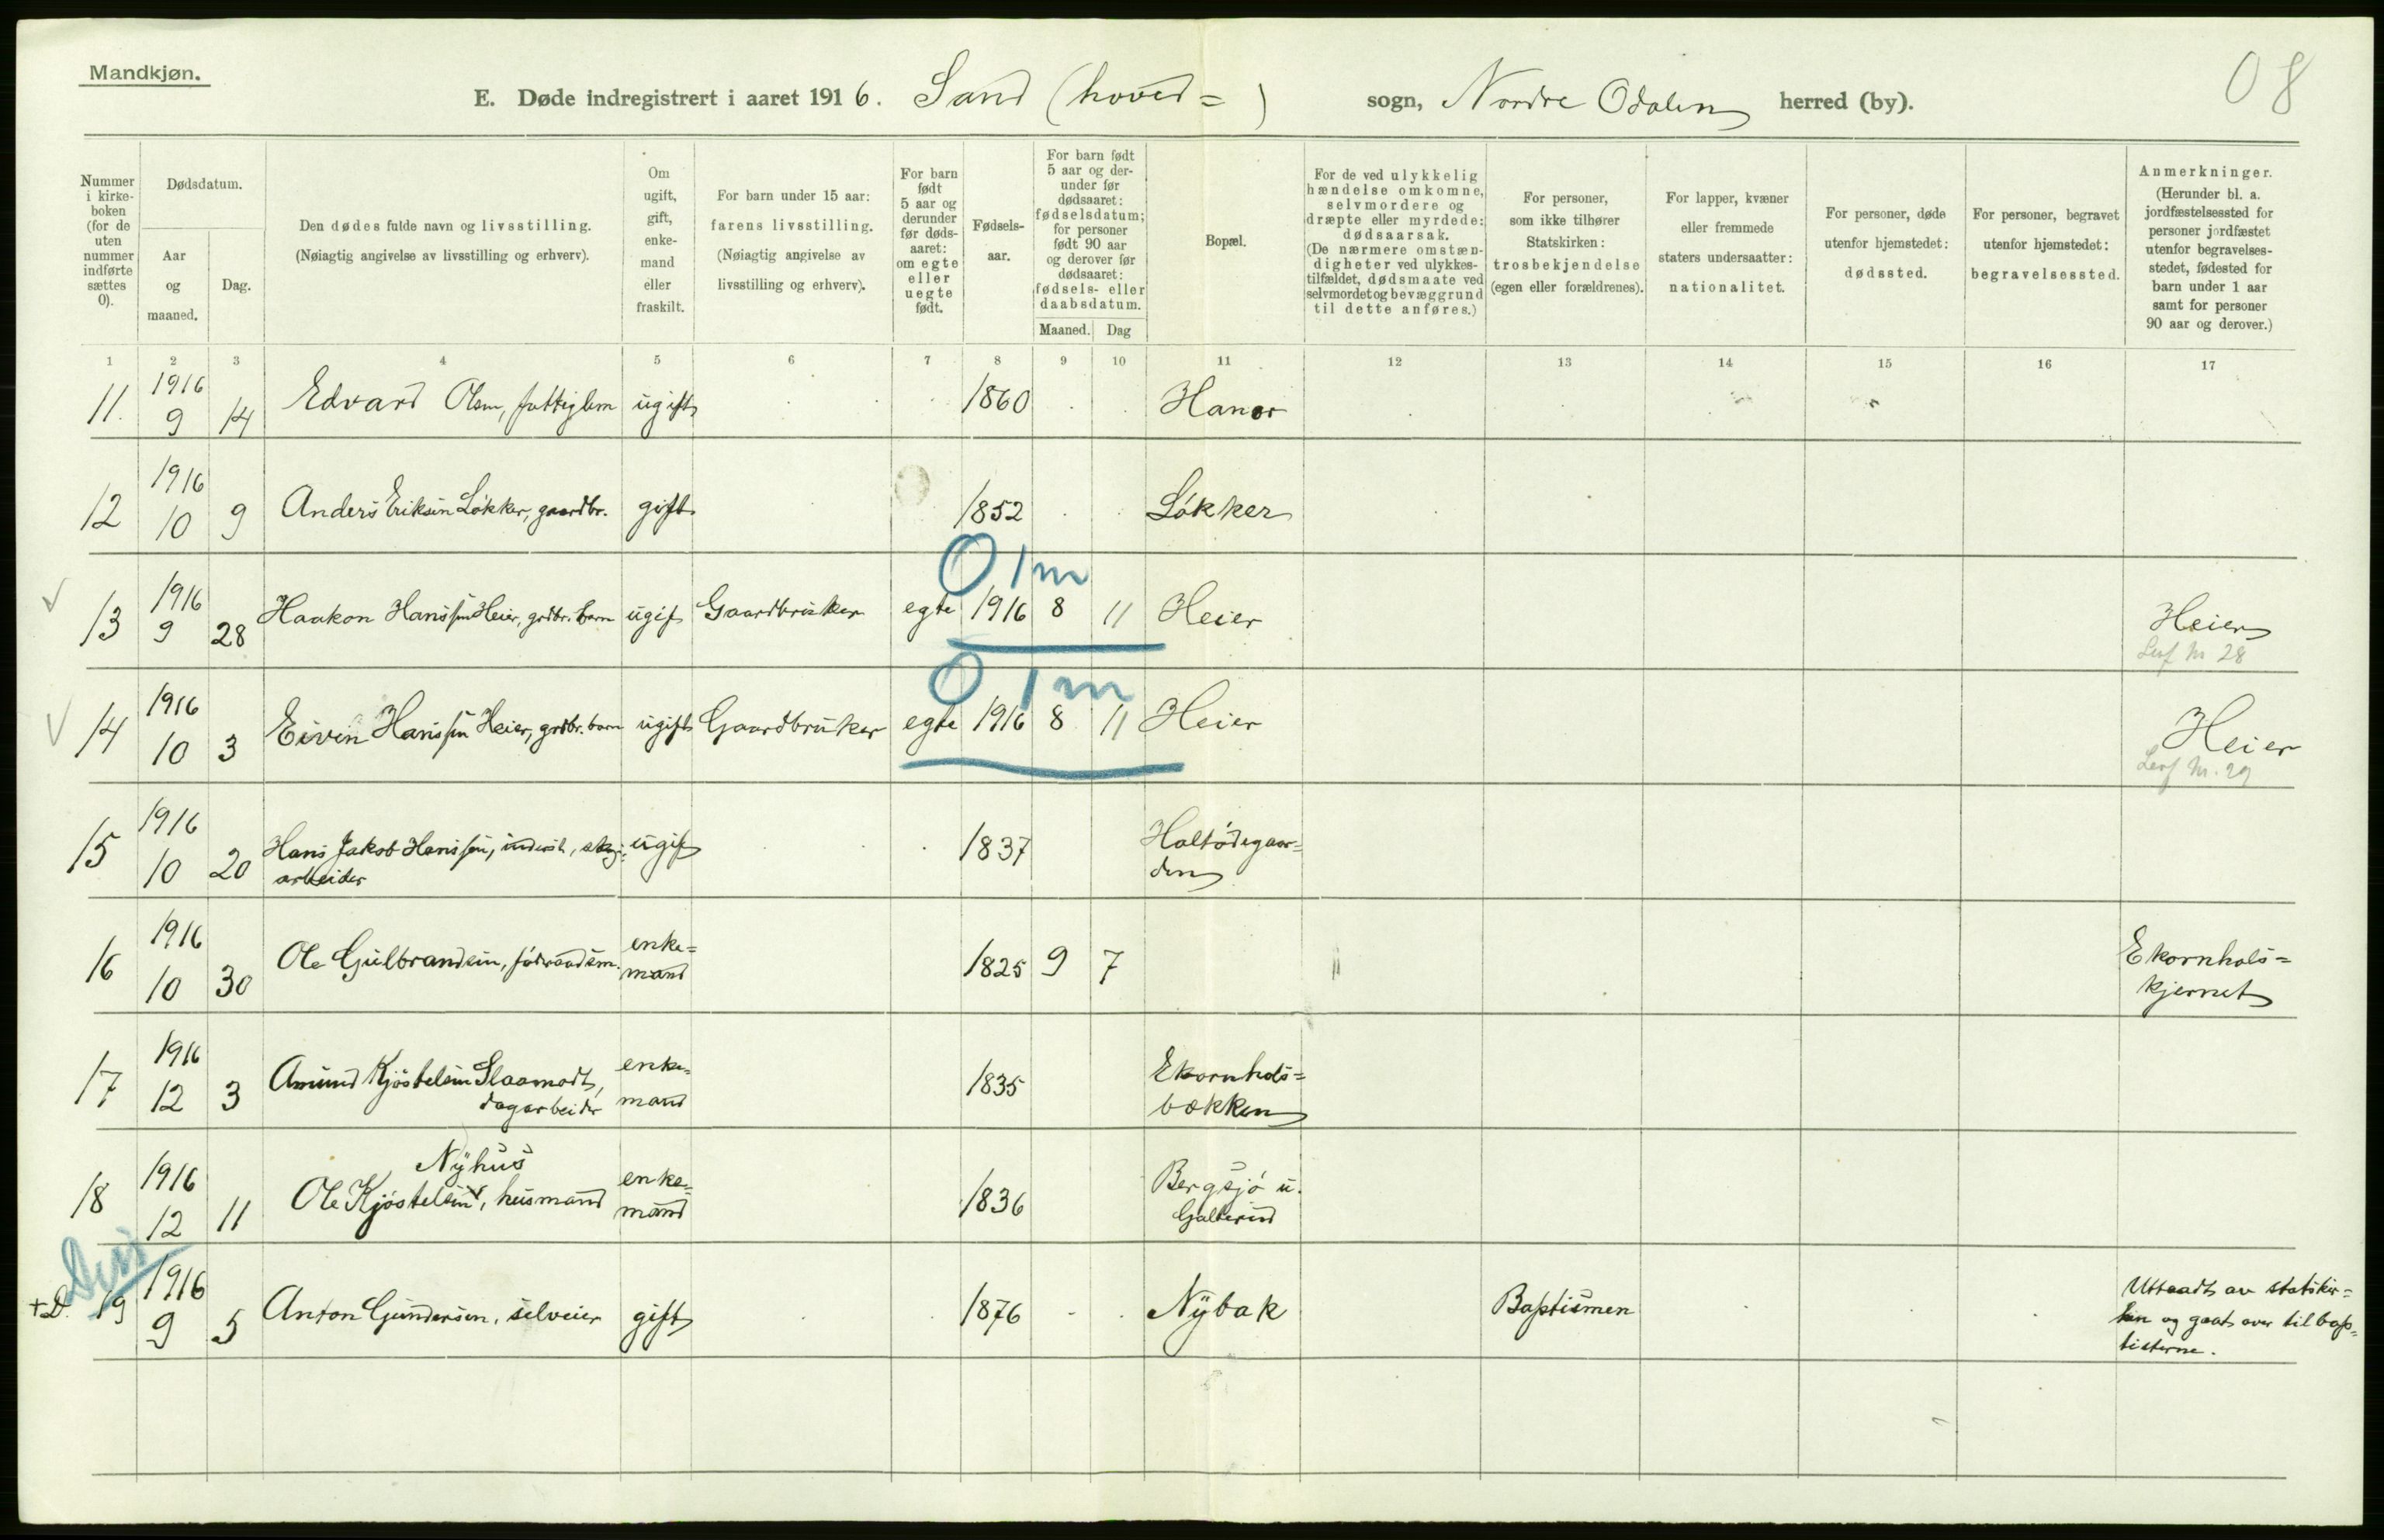 Mandkjøn.
08
E. Døde indregistrert i aaret 1916. Sand (hoved=) sogn, Nordre Odalen herred (by).
Nummer i kirke-boken (for de uten nummer indførte sættes 0).
Dødsdatum.
Aar og maaned.
Dag.
Den dødes fulde navn og livsstilling.
(Nøiagtig angivelse av livsstilling og erhverv).
Om ugift, gift, enke-mand eller fraskilt.
For barn under 15 aar: farens livsstilling.
(Nøiagtig angivelse av livsstilling og erhverv).
For barn født 5 aar og derunder før døds-aaret: om egte eller uegte født.
Fødsels-aar.
For barn født 5 aar og der-under før dødsaaret: fødselsdatum; for personer født 90 aar og derover før dødsaaret: fødsels- eller daabsdatum.
Maaned. Dag
Bopæl.
For de ved ulykkelig hændelse omkomne, selvmordere og dræpte eller myrdede: dødsaarsak.
(De nærmere omstæn-digheter ved ulykkes-tilfældet, dødsmaate ved selvmordet og bevæggrund til dette anføres.)
For personer, som ikke tilhører Statskirken: trosbekjendelse (egen eller forældrenes).
For lapper, kvæner eller fremmede staters undersaatter: nationalitet.
For personer, døde utenfor hjemstedet: dødssted.
For personer, begravet utenfor hjemstedet: begravelsessted.
Anmerkninger.
(Herunder bl. a. jordfæstelsessted for personer jordfæstet utenfor begravelses-stedet, fødested for barn under 1 aar samt for personer 90 aar og derover.)
1 2 3 4 5 6 7 8 9 10 11 12 13 14 15 16 17
11. 1916 9 14 Edvard Olsen, fattiglem ugift 1860 Haner
12 1916 10 9 Anders Eriksen Løkker, gaardbr. gift 1852 Løkker
0 1m
13 1916 9 28 Haakon Hanssen Heier, grdbr. barn ugift Gaardbruker egte 1916 8 11 Heier Heier
Lef Nr 28
0 1m
14 1916 10 3 Eivin Hanssen Heier, grdbr. barn ugift Gaardbruker egte 1916 8 11 Heier Heier
Lef Nr. 29
15 1916 10 20 Hans Jakob Hanssen, inderst, skog-
arbeider ugift 1837 Holtødegaar=
den
16 1916 10 30 Ole Gulbrandsen, føderaadsm. enke=
mand 1825 9 7 Ekornhols=
kjernet
17 1916 12 3 Amund Kjøstelsen Slaamodt,
dagarbeider enke=
mand 1835 Ekornhols=
bækken
Nyhus
18 1916 12 11 Ole Kjøstelsen, husmand enke=
mand 1836 Bergsjø u.
Galterud
Diss
+D. 19 1916 9 5 Anton Gundersen, selveier gift 1876 Nybak Baptismen Uttraadt av statskir=
ken og gaat over til bap=
tisterne.